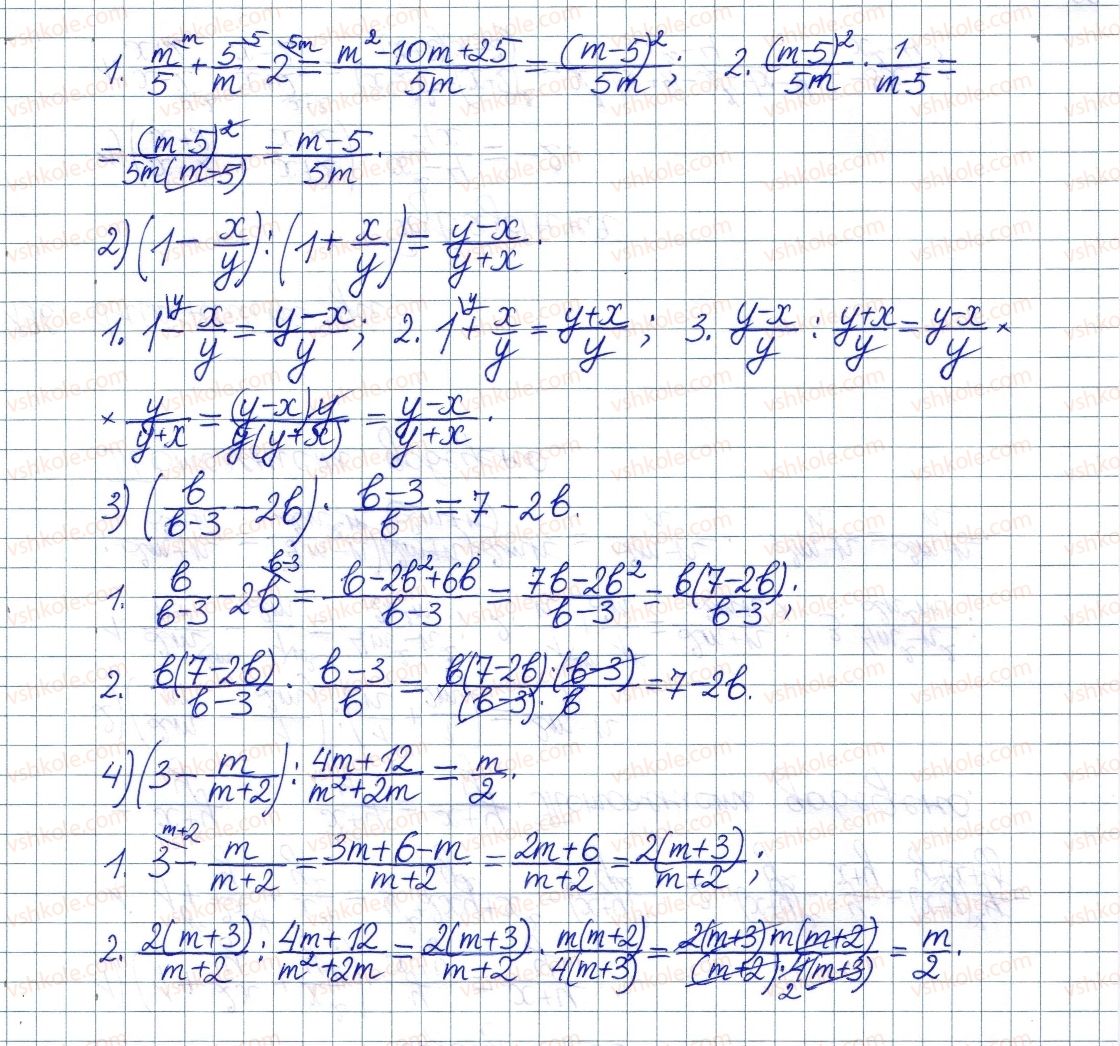 1. m/5 + 5/m - 2 = (m² - 10m + 25)/5m = (m-5)²/5m; 2. (m-5)²/5m · 1/(m-5) =
= (m-5)²/5m(m-5) = (m-5)/5m.
2) (1 - x/y) : (1 + x/y) = (y-x)/(y+x).
1. 1 - x/y = (y-x)/y; 2. 1 + x/y = (y+x)/y; 3. (y-x)/y : (y+x)/y = (y-x)/y ×
× y/(y+x) = (y-x)y/y(y+x) = (y-x)/(y+x).
3) (b/(b-3) - 2b) · (b-3)/b = 7 - 2b.
1. b/(b-3) - 2b = (b - 2b² + 6b)/(b-3) = (7b - 2b²)/(b-3) = b(7-2b)/(b-3);
2. b(7-2b)/(b-3) · (b-3)/b = b(7-2b)·(b-3)/(b-3)·b = 7-2b.
4) (3 - m/(m+2)) : (4m+12)/(m²+2m) = m/2.
1. 3 - m/(m+2) = (3m+6-m)/(m+2) = (2m+6)/(m+2) = 2(m+3)/(m+2);
2. 2(m+3)/(m+2) : (4m+12)/(m²+2m) = 2(m+3)/(m+2) · m(m+2)/4(m+3) = 2(m+3)m(m+2)/(m+2)·4(m+3) = m/2.
vshkole.com